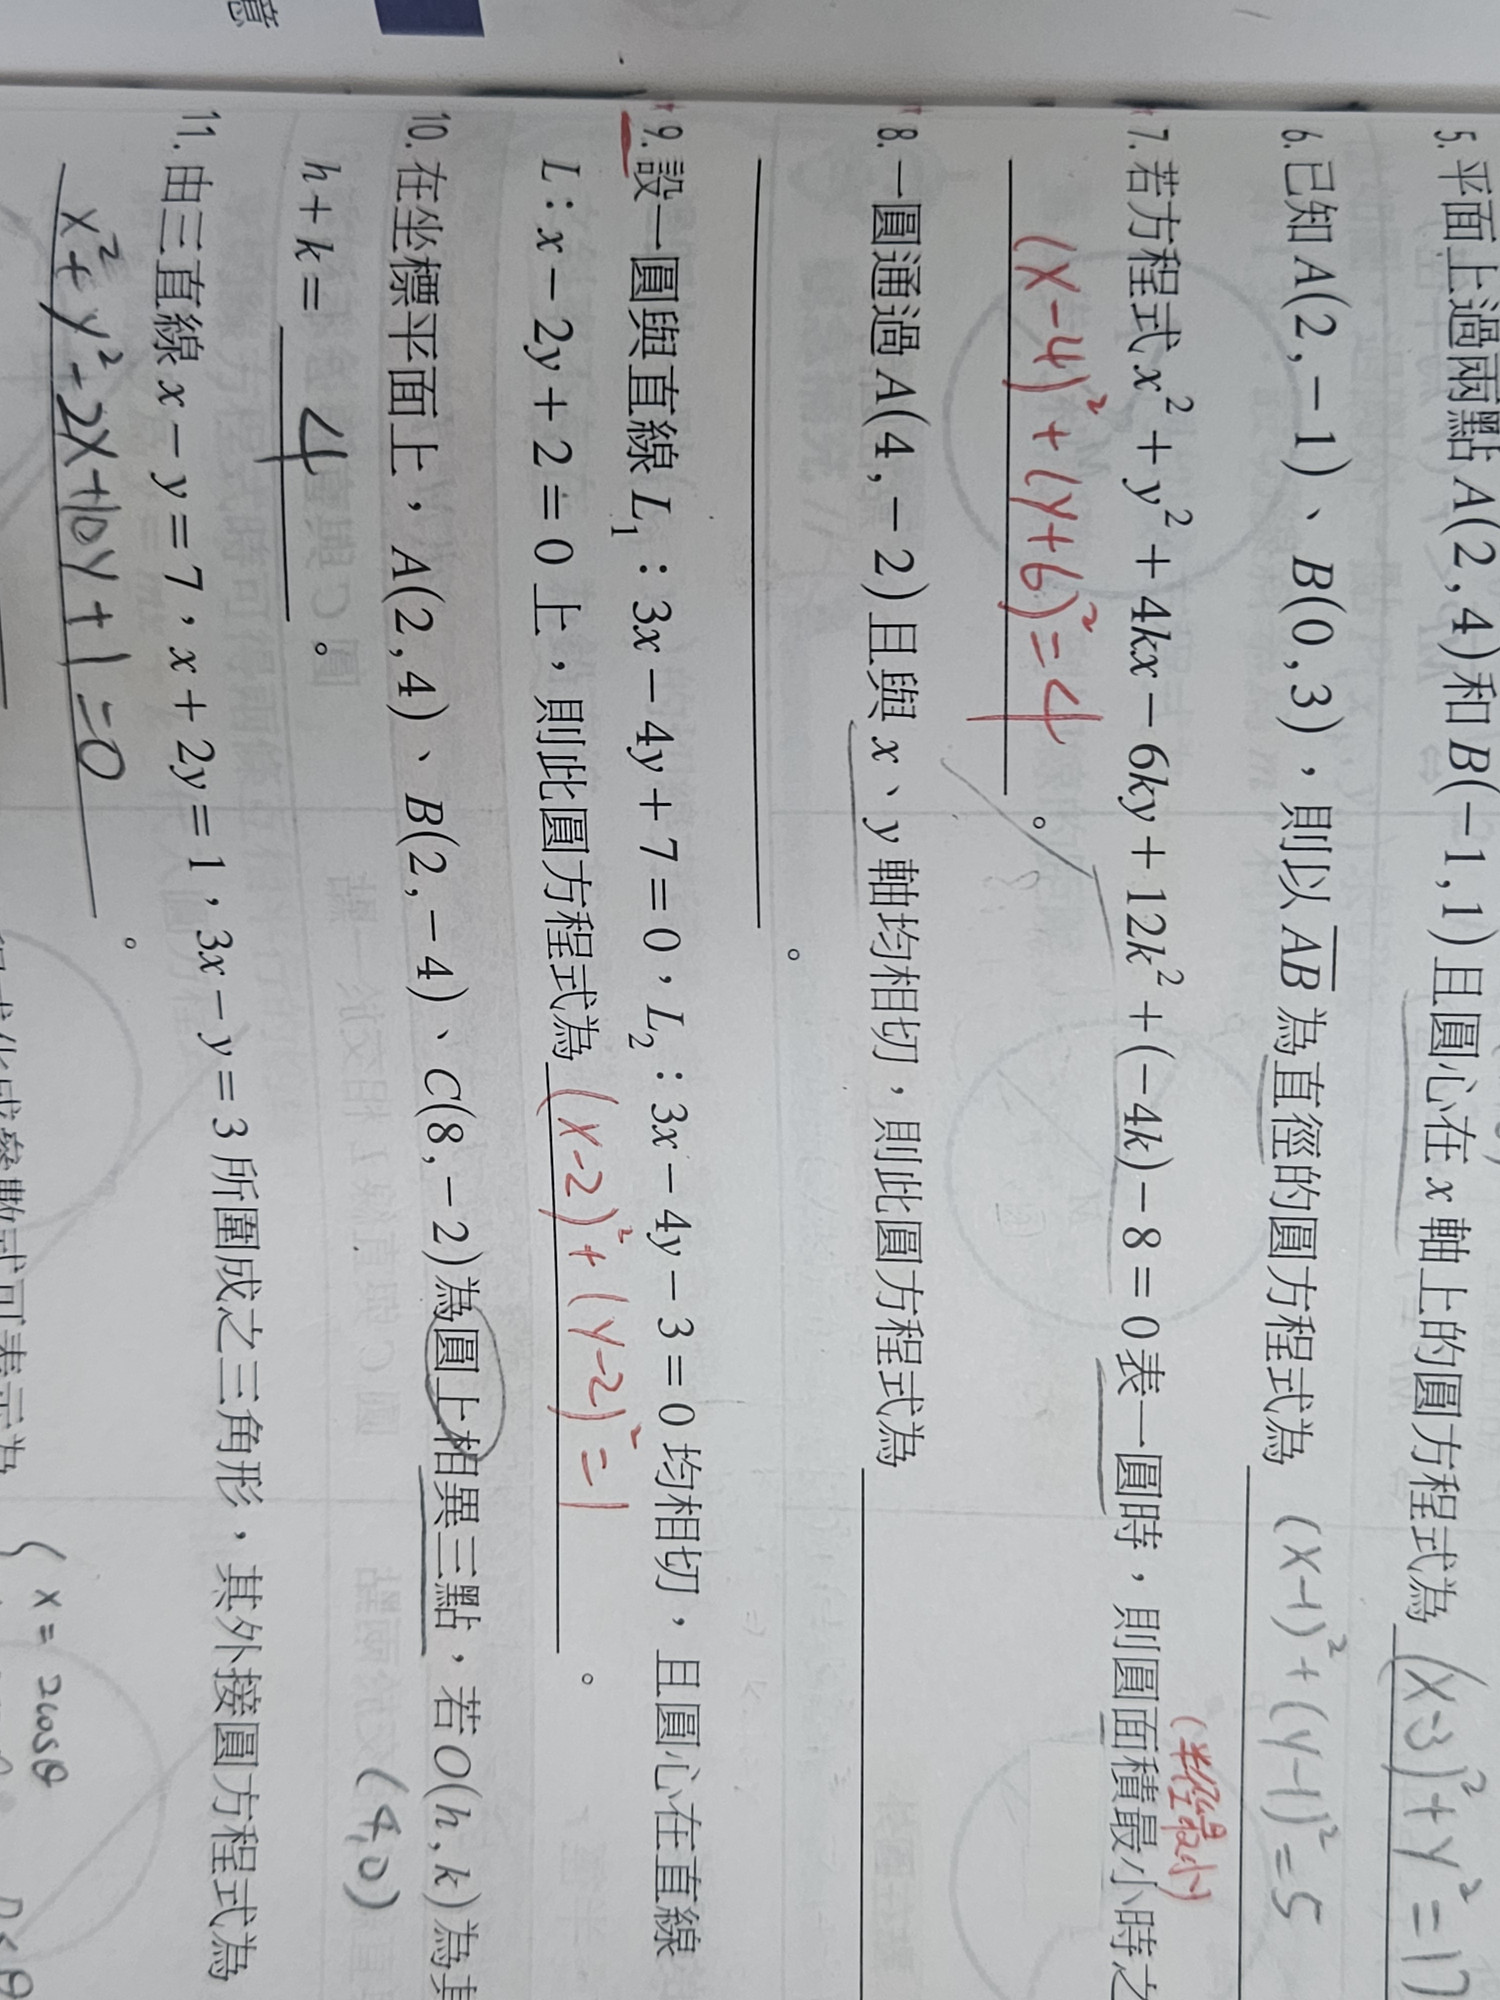 意
5. 平面上過兩點 A(2,4) 和 B(−1,1) 且圓心在 x 軸上的圓方程式為 (x-3)²+y²=17
6. 已知 A(2,−1)、B(0,3),則以 AB 為直徑的圓方程式為 (x-1)²+(y-1)²=5
(半徑最小)
7. 若方程式 x²+y²+4kx−6ky+12k²+(−4k)−8=0 表一圓時,則圓面積最小時之
(x-4)²+(y+6)²=4 。
8. 一圓通過 A(4,−2) 且與 x、y 軸均相切,則此圓方程式為
。
9. 設一圓與直線 L₁:3x−4y+7=0,L₂:3x−4y−3=0 均相切,且圓心在直線
L:x−2y+2=0 上,則此圓方程式為 (x-2)²+(y-2)²=1 。
10. 在坐標平面上,A(2,4)、B(2,−4)、C(8,−2) 為圓上相異三點,若 O(h,k) 為其
h+k= 4 。 (4,0)
11. 由三直線 x−y=7,x+2y=1,3x−y=3 所圍成之三角形,其外接圓方程式為
x²+y²-2x+10y+1=0 。
x = 2cosθ